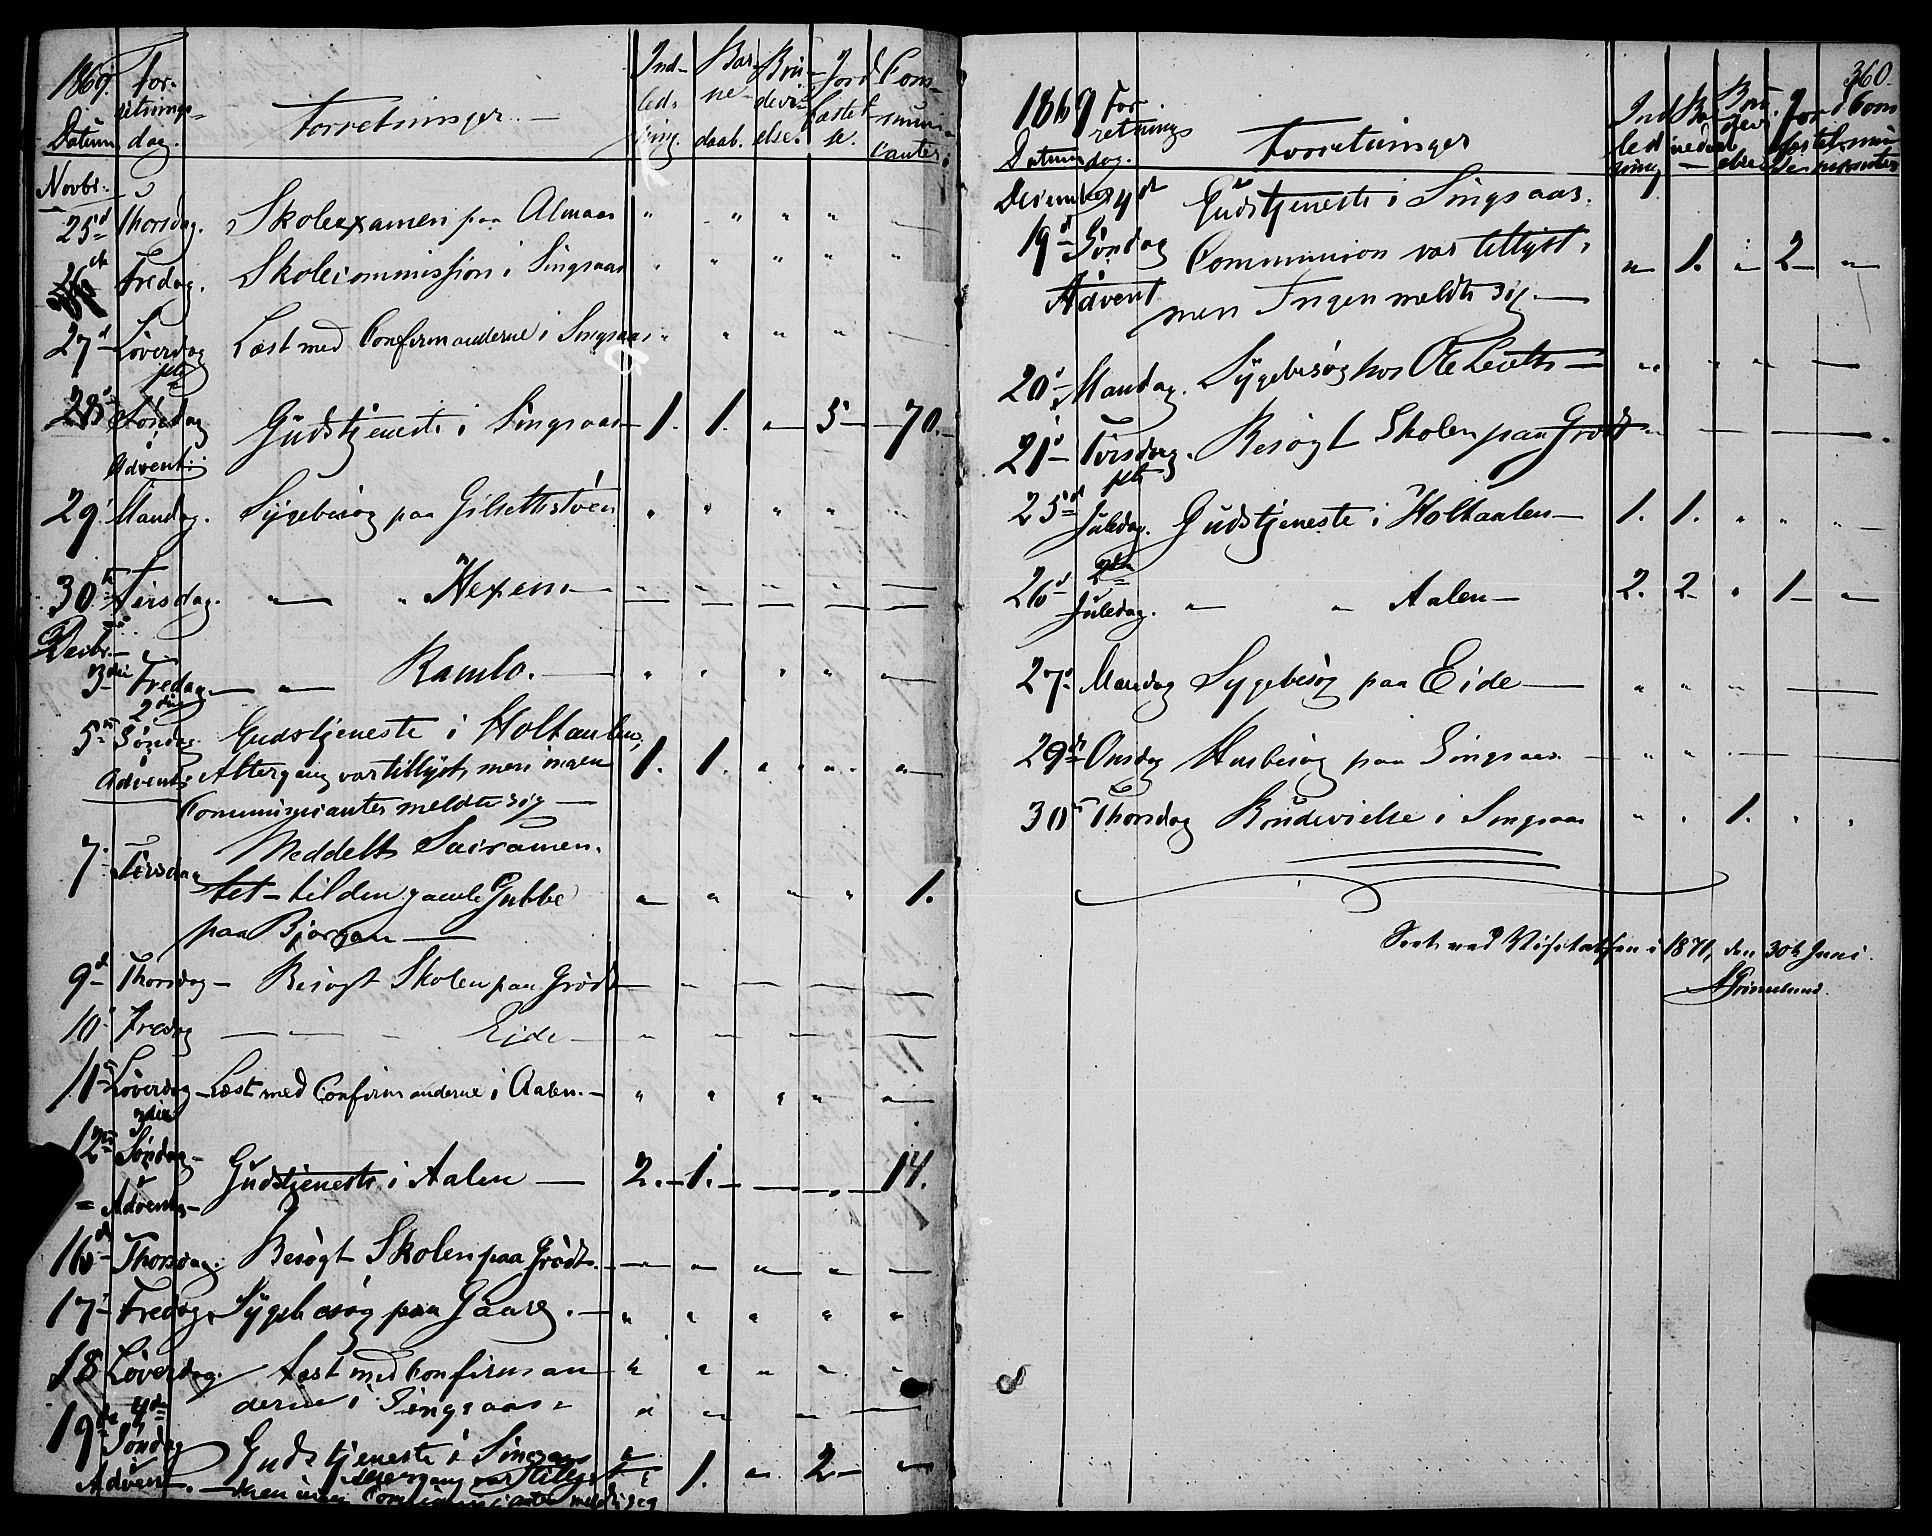 1869. For-
retnings-
Datum dag. Forretninger. Ind- led- ning. Bar- ne- daab. Bru- devi- else. Jord- fæstel- se. Com- muni- canter.
Novbr.
25d Thorsdag. Skoleexamen paa Almaas " " " "
26de Fredag. Skolecommission i Singsaas " " " " "
27d Löverdag Læst med Confirmanderne i Singsaas " " " "
1ste
28d Söndag Gudstjeneste i Singsaas 1. 1. " 5 70.
i Advent.
29 Mandag. Sygebesög paa Gilsetstöen " " " "
30te Tirsdag. " " Hexem " " " "
Decbr.
3die Fredag " Ramlo. " " " " "
2den
5te Söndag Gudstjeneste i Holtaalen,
i Advent Altergang var tillyst, men ingen 1. 1. " " " "
Communicanter meldte sig
7 Tirsdag Meddelt Sacramen-
tet til den gamle Gubbe " " " " 1.
paa Bjorgan
9d Thorsdag Besögt Skolen paa Grödt
10 Fredag Eide
11 Löverdag Læst med Confirmanderne i Aalen. " " " " "
3die
12te Söndag
i Advent Gudstjeneste i Aalen 2. 1. " 14.
16d Thorsdag. Besögt Skolen paa Grödt. " " " "
17 Fredag. Sygebesög paa Gaare. " " " " "
18 Löverdag. Læst med Confirman " " " " "
derne i Singsaas " " "
19de 4de
Söndag Gudstjeneste i Singsaas
i Advent. Altergang var tillyst 1. " 2 "
men ingen Communicanter meldt sig
360.
1869 For-
retnings
Datum dag. Forretninger Ind led ning Ba- nedaab Brudevi- else Jord fæstel- se Com mu- nicanter
December 4de Gudstjeneste i Singsaas.
19d Söndag Communion var tillyst, " 1. " 2 "
i Advent men Ingen meldte sig.
20 Mandag. Sygebesög hos Ole " " "
21 Tirsdag. Besögt Skolen paa Grödt
1ste
25d Juledag. Gudstjeneste i Holtaalen 1. 1. " " "
2den
26 Juledag. " " Aalen 2. 2 " 1 "
27 Mandag Sygebesög paa Eide " " "
29de Onsdag Husbesög paa Singsaas. " "
30te Thorsdag Brudevielse i Singsaas " " 1. " "
Seet ved Visitatsen i 1871, den 30te Juni.
Grimelund.